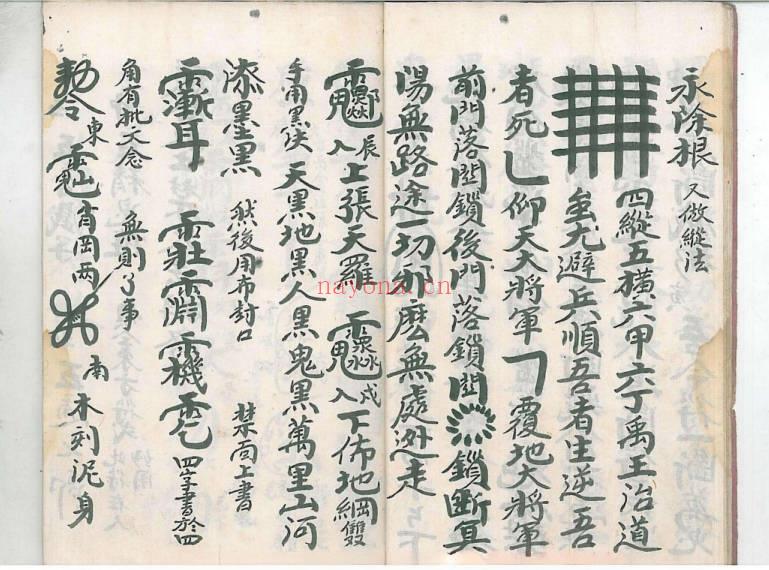 永除根 又做縱法
四縱五橫六甲六丁禹王治道
蚩尤避兵順吾者生逆吾
者死 仰天大將軍 覆地大將軍
前門落閂鎖後門落鎖閂 鎖斷真
陽無路途一切邪魔無處逃走
辰 入上張天羅 戌 入下佈地網 雙
手用黑訣 天黑地黑人黑鬼黑萬里山河
添墨黑 然後用布封口 禁 上書
耳 四字書於四
角有批文念 無則了事
勅令 東 岡兩 南 木刻泥身
nayona.cn